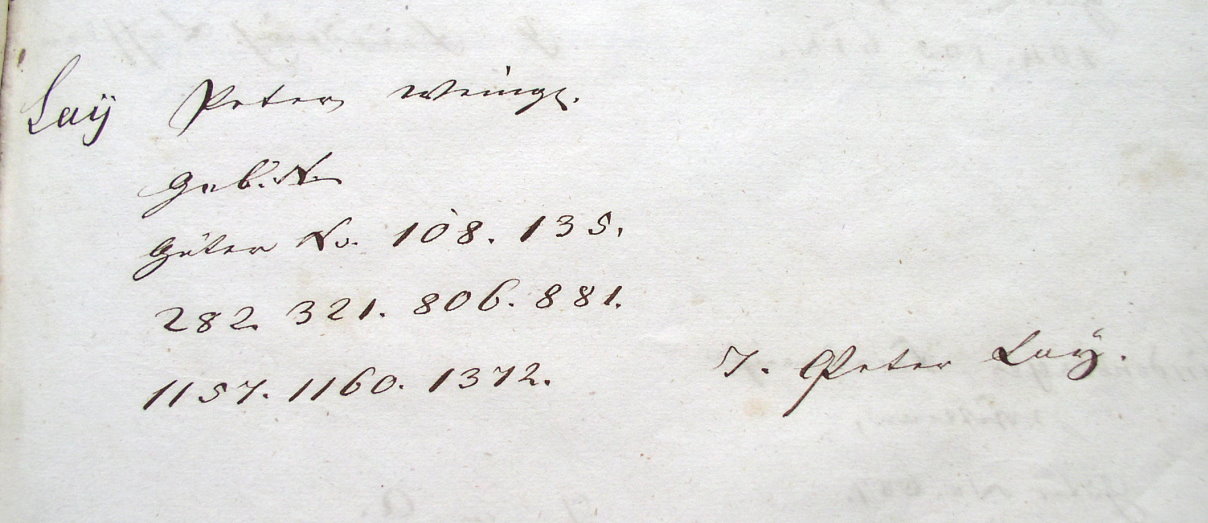 Laÿ Peter Weingr.
Geb. N.
Güter No. 108. 135.
282. 321. 806. 881.
1157. 1160. 1372.
T. Peter Laÿ.